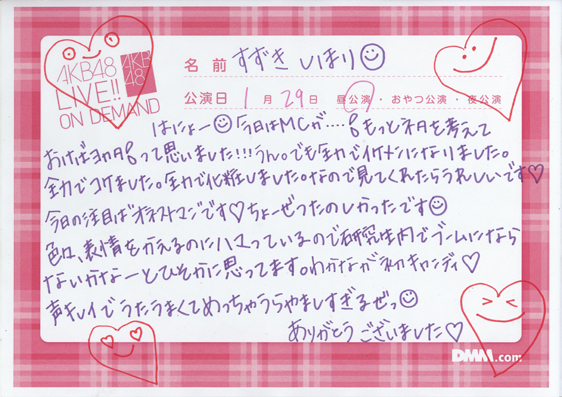 AKB48
LIVE!!
ON DEMAND
AKB
48
名前 すずき しほり
公演日 1月29日 昼公演・おやつ公演・夜公演
はにょー 今日はMCが....もっとネタを考えて
おけばヨカタって思いました!!!うん。でも全力でイケメンになりました。
全力でコケました。全力で化粧しました。なので見てくれたらうれしいです♡
今日の注目はオネストマンです♡ちょーぜつたのしかったです
色々、表情をかえるのにハマっているので研究生内でブームになら
ないかなーとひそかに思ってます。わかなが初キャンディ♡
声キレイでうたうまくてめっちゃうらやましすぎるぜっ
ありがとうございました♡
DMM.com